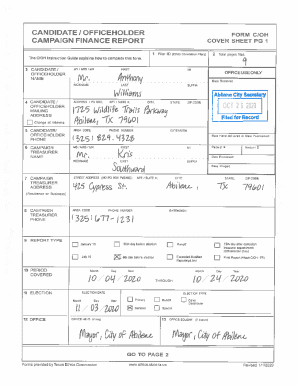 CANDIDATE / OFFICEHOLDER CAMPAIGN FINANCE REPORT
FORM C/OH
COVER SHEET PG 1
The C/OH Instruction Guide explains how to complete this form.
1 Filer ID (Ethics Commission Filers)
2 Total pages filed:
9
3 CANDIDATE / OFFICEHOLDER NAME
MS / MRS / MR FIRST MI
Mr. Anthony
NICKNAME LAST SUFFIX
Williams
OFFICE USE ONLY
Date Received
Abilene City Secretary
OCT 26 2020
Filed for Record
4 CANDIDATE / OFFICEHOLDER MAILING ADDRESS
Change of Address
ADDRESS / PO BOX; APT / SUITE #; CITY; STATE; ZIP CODE
1725 Wildlife Trails Parkway
Abilene, TX 79601
5 CANDIDATE / OFFICEHOLDER PHONE
AREA CODE PHONE NUMBER EXTENSION
(325) 829-4328
Date Hand-delivered or Date Postmarked
6 CAMPAIGN TREASURER NAME
MS / MRS / MR FIRST MI
Mr. Kris
NICKNAME LAST SUFFIX
Southward
Receipt # Amount $
Date Processed
Date Imaged
7 CAMPAIGN TREASURER ADDRESS
(Residence or Business)
STREET ADDRESS (NO PO BOX PLEASE); APT / SUITE #; CITY; STATE; ZIP CODE
425 Cypress St. Abilene, Tx 79601
8 CAMPAIGN TREASURER PHONE
AREA CODE PHONE NUMBER EXTENSION
(325) 677-1231
9 REPORT TYPE
January 15
30th day before election
Runoff
15th day after campaign treasurer appointment (Officeholder Only)
July 15
8th day before election
Exceeded Modified Reporting Limit
Final Report (Attach C/OH - FR)
10 PERIOD COVERED
Month Day Year
10/04/2020
THROUGH
Month Day Year
10/24/2020
11 ELECTION
ELECTION DATE
Month Day Year
11/03/2020
ELECTION TYPE
Primary
Runoff
Other Description
General
Special
12 OFFICE
OFFICE HELD (if any)
Mayor, City of Abilene
13 OFFICE SOUGHT (if known)
Mayor, City of Abilene
GO TO PAGE 2
Forms provided by Texas Ethics Commission
www.ethics.state.tx.us